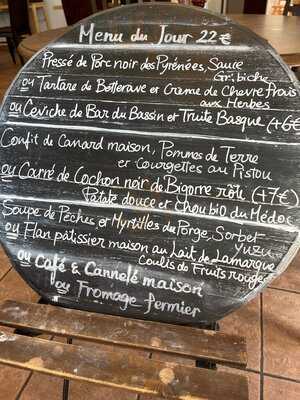 Menu du Jour 22€
Pressé de Porc noir des Pyrénées, Sauce
Gribiche
ou Tartare de Betterave et Creme de Chèvre frais
aux Herbes
ou Ceviche de Bar du Bassin et Truite Basque (+6€
Confit de Canard maison, Pommes de Terre
et Courgettes au Pistou
ou Carré de Cochon noir de Bigorre rôti (+7€)
Patate douce et Chou bio du Médoc
Soupe de Pêches et Myrtilles du Forge, Sorbet
Yuzu
ou Flan pâtissier maison au Lait de Lamarque
Coulis de Fruits rouges
ou Café & Cannelé maison
ou Fromage fermier